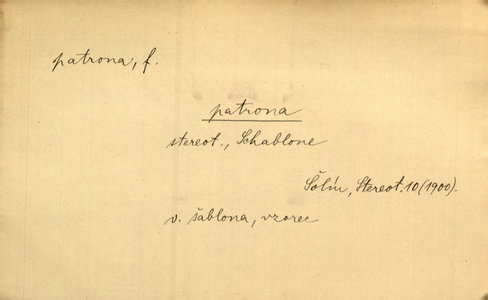 patrona, f.
patrona
stereot., Schablone
Šolín, Stereot. 10 (1900).
v. šablona, vzorec